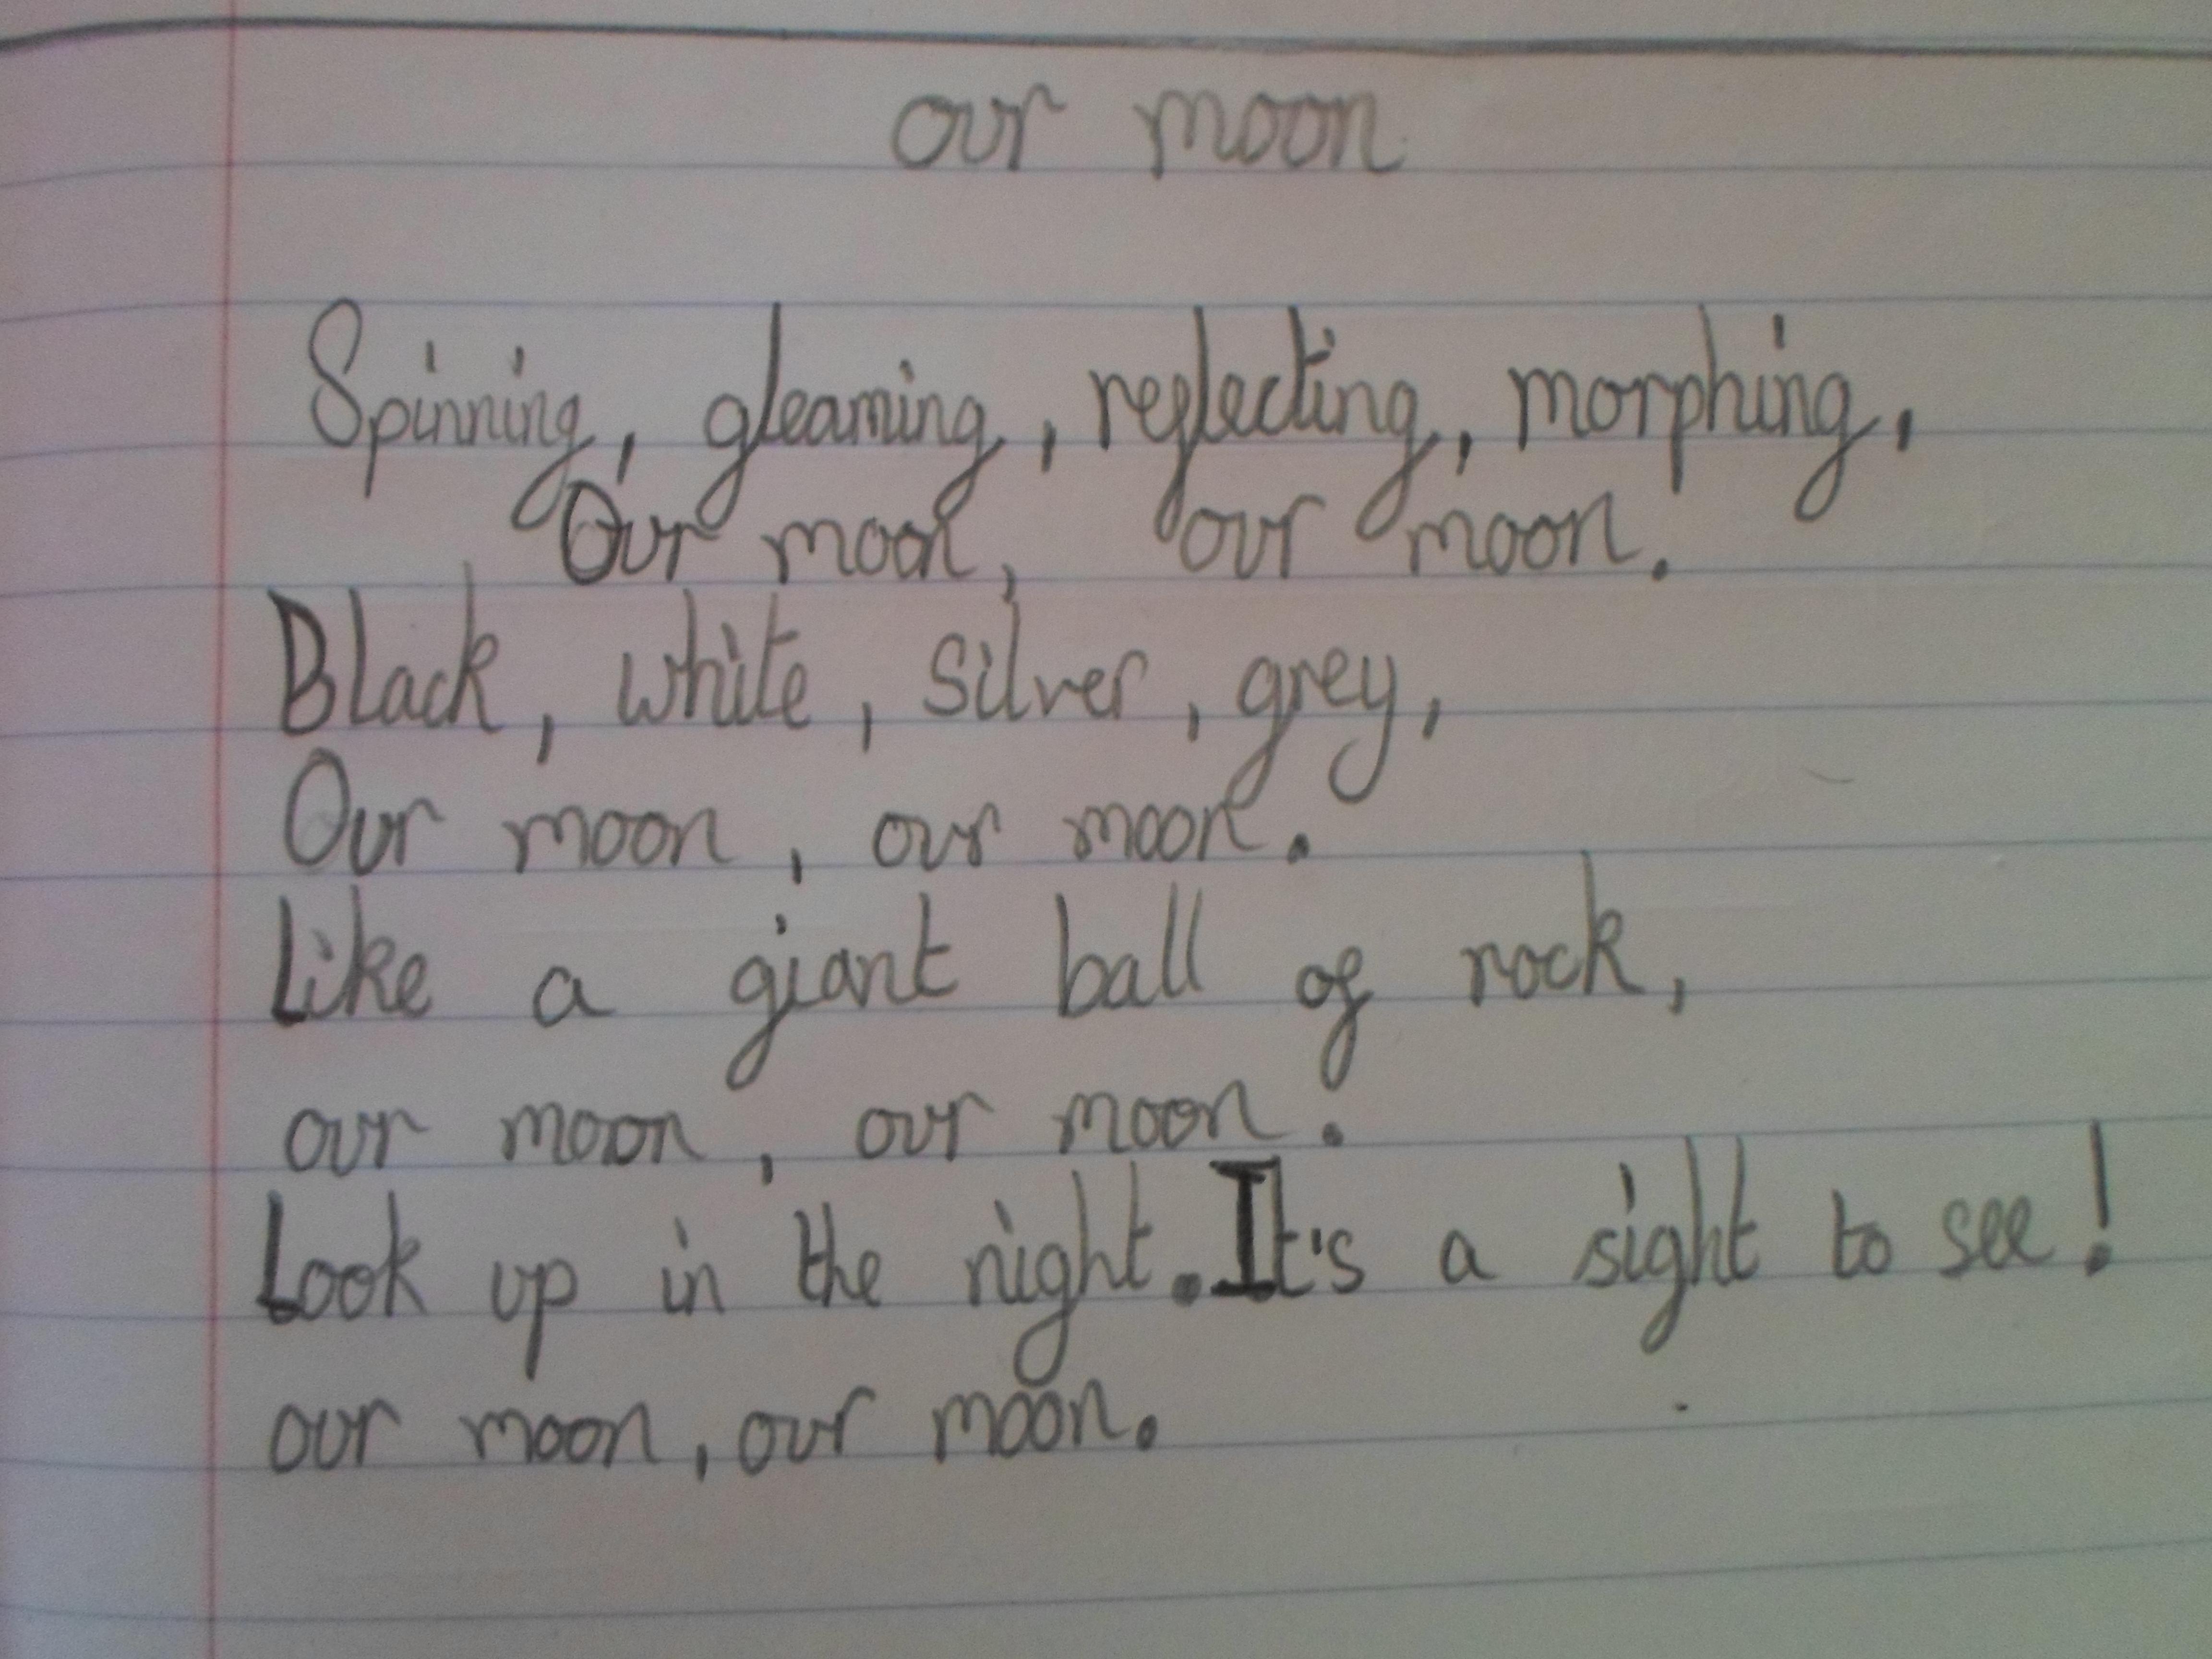 our moon
Spinning, gleaming, reflecting, morphing,
Our moon, our moon.
Black, white, silver, grey,
Our moon, our moon.
Like a giant ball of rock,
our moon, our moon.
Look up in the night. It's a sight to see!
our moon, our moon.